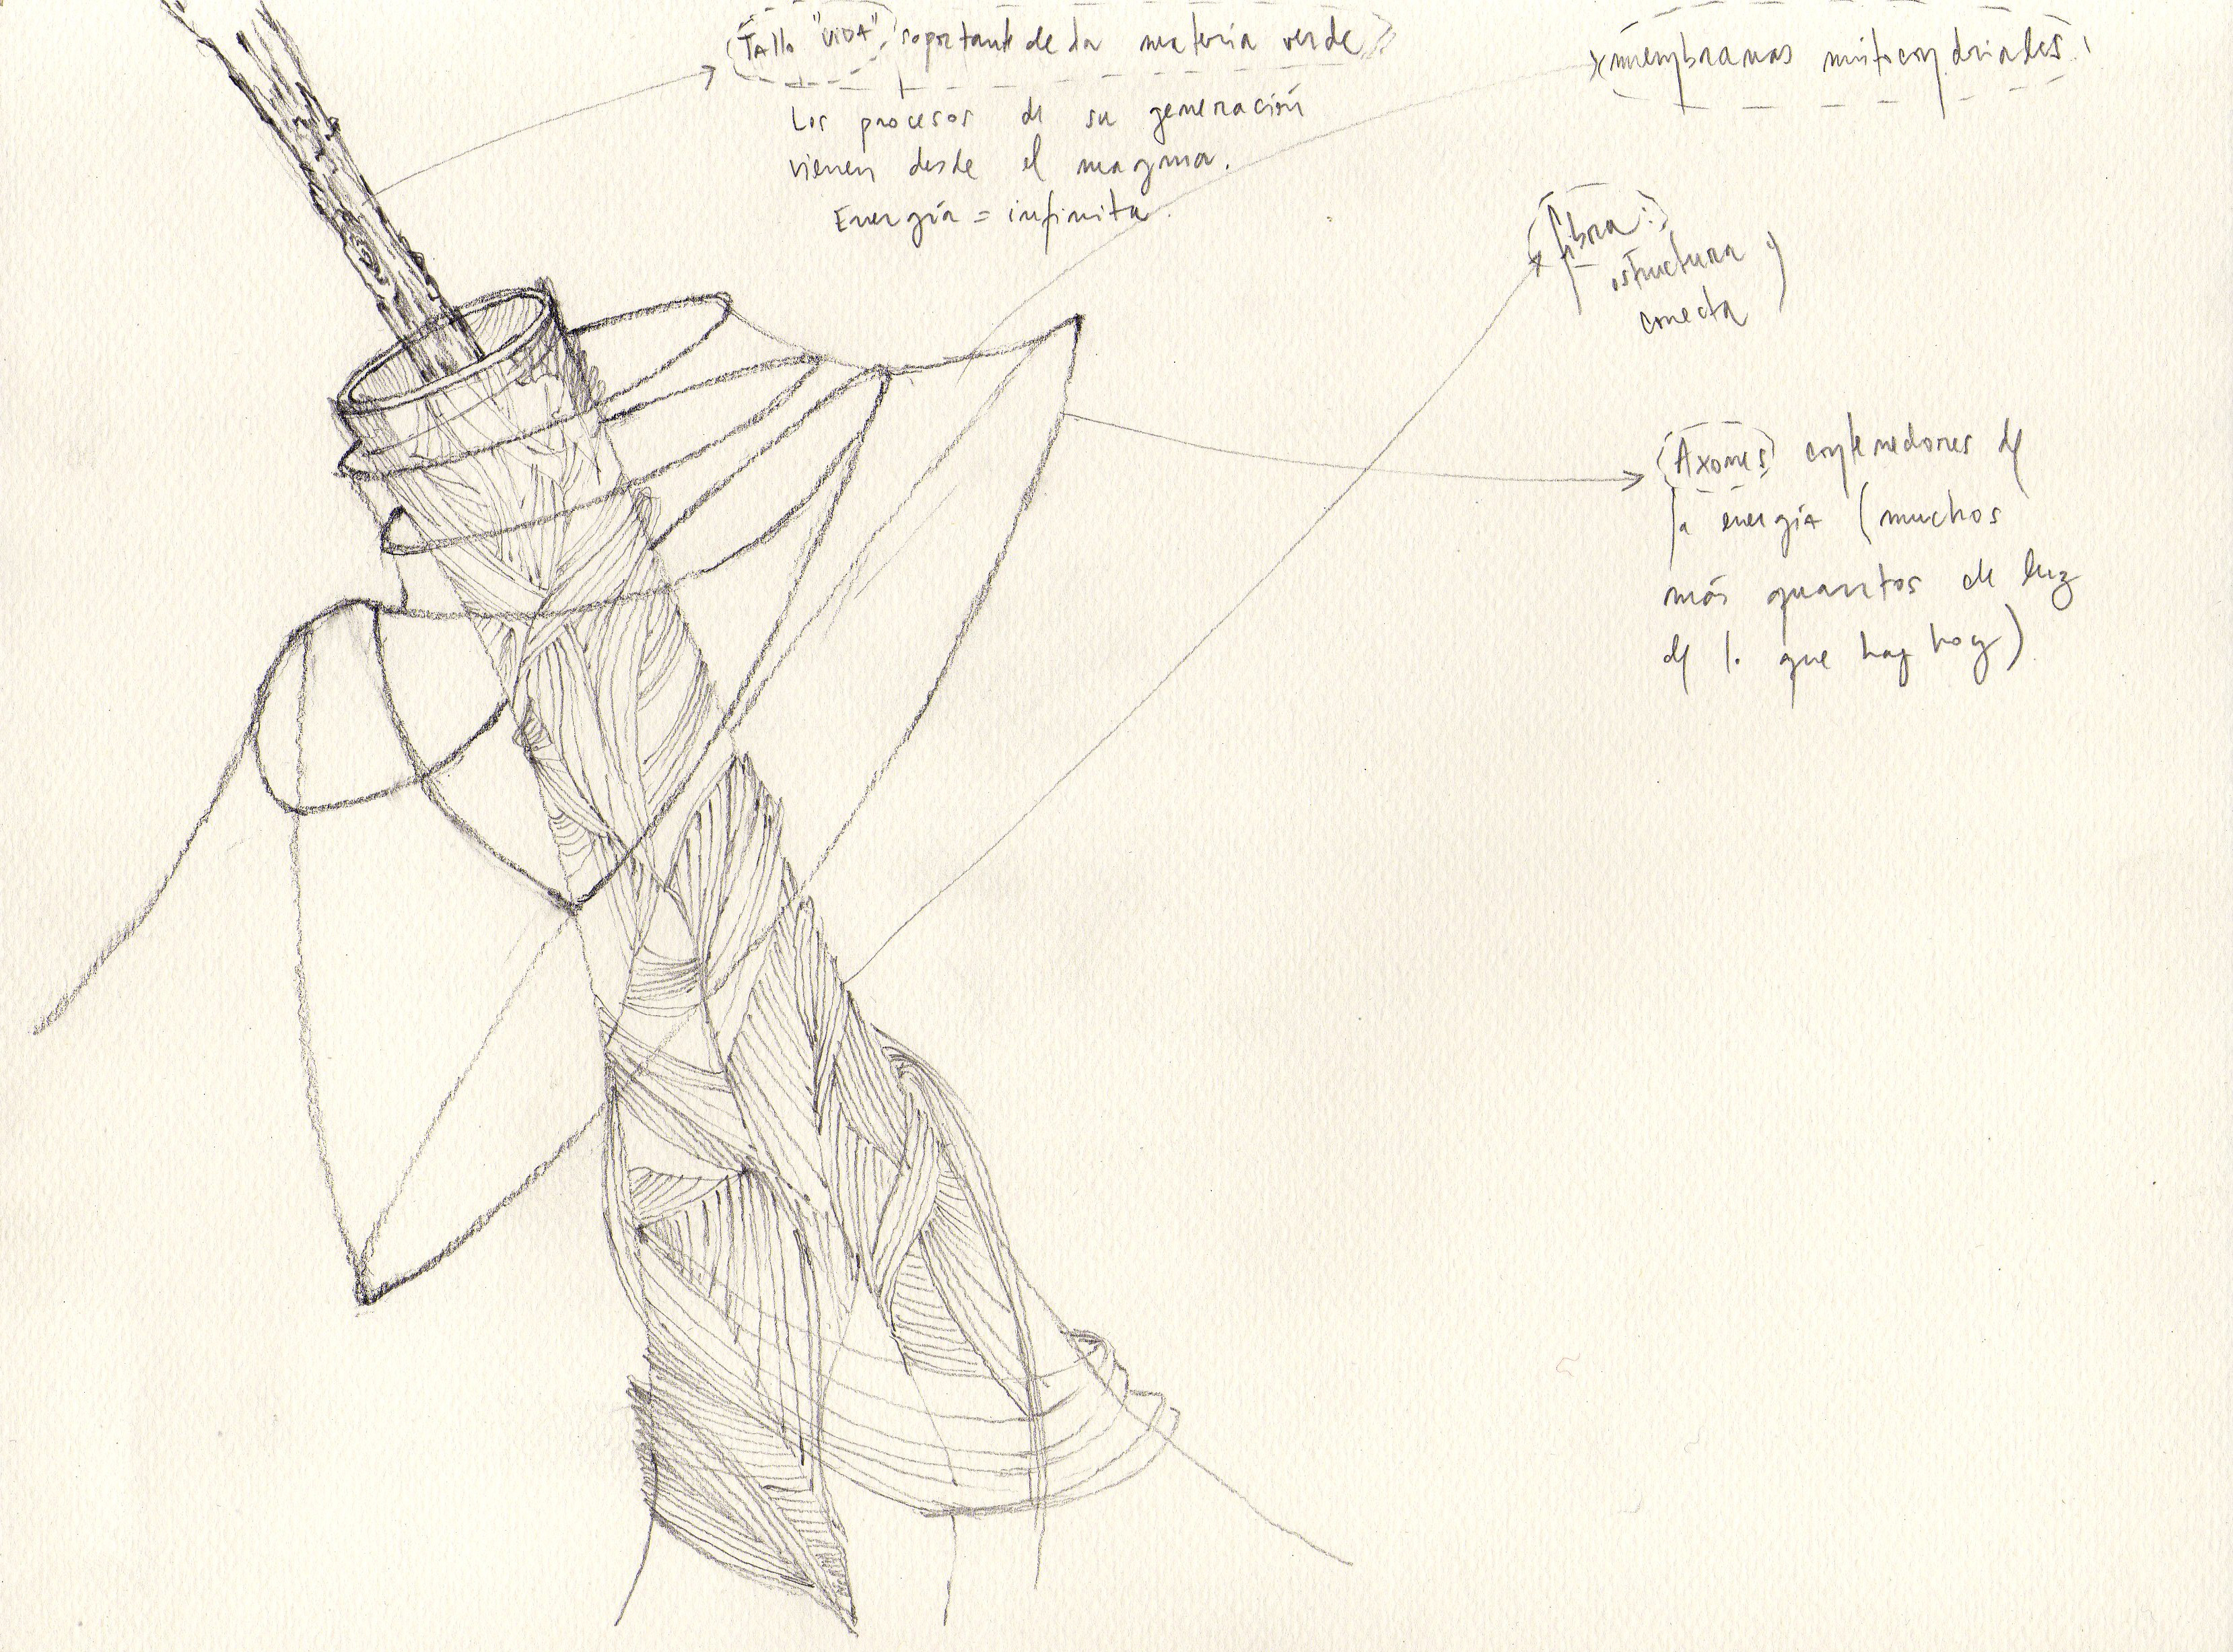 Tallo "VIDA", soportante de la materia verde
Los procesos de su generación
vienen desde el magma.
Energía = infinita.
membranas mitocondriales
fibra:
estructura y
conecta
Axones contenedores de
la energía (muchos
más quantos de luz
de lo que hay hoy)